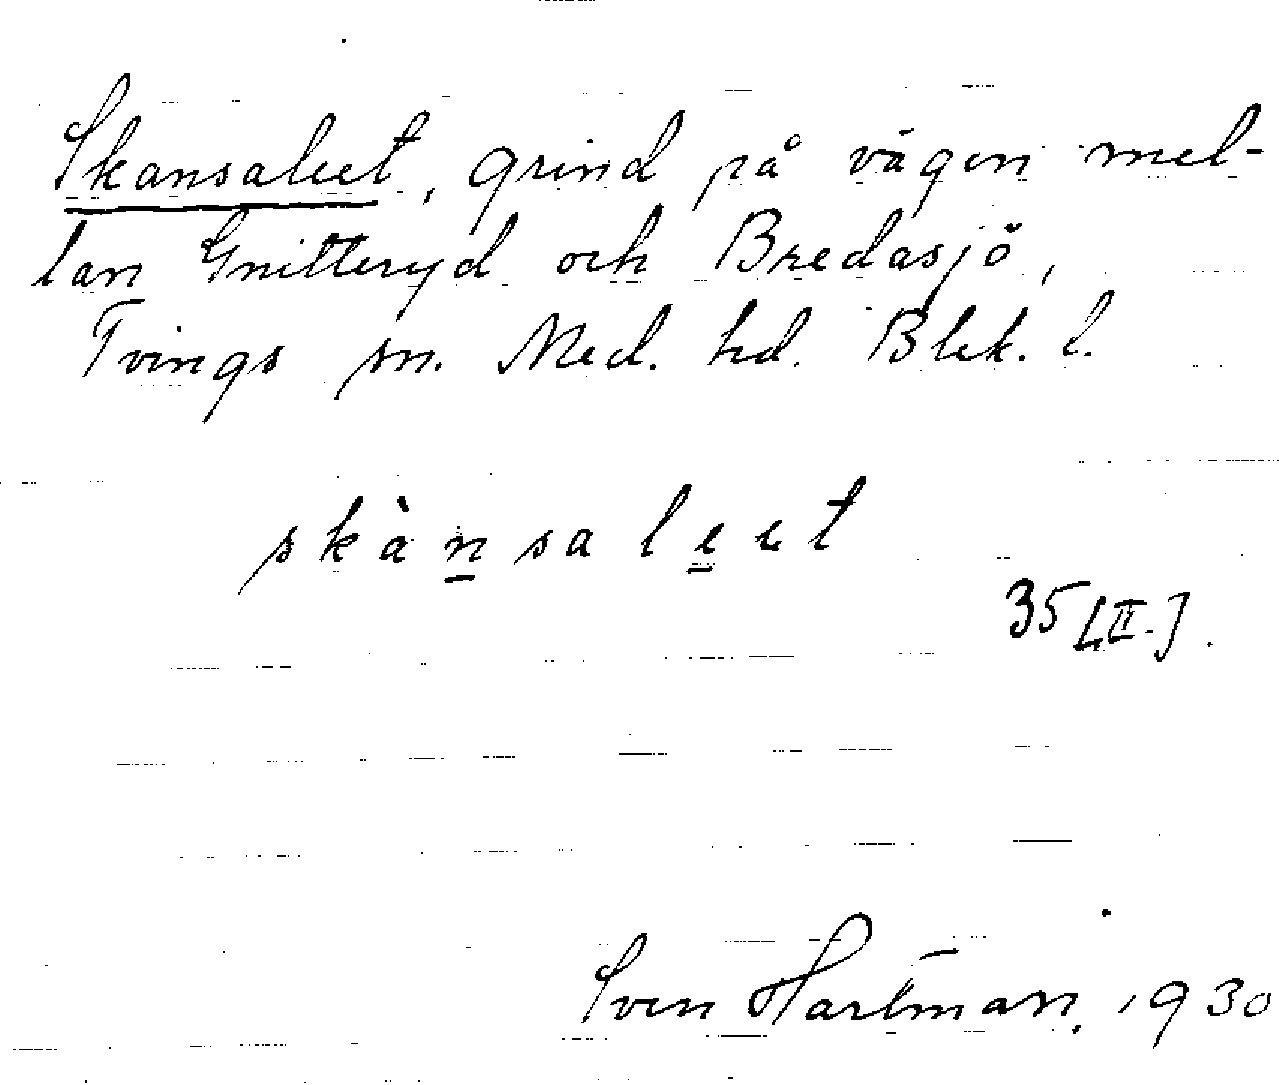 Skansaleet, grind på vägen mel-
lan Gnitteryd och Bredasjö,
Tvings sn. Med. hd. Blek. l.
skànsaleet
35 [II.].
Sven Hartman, 1930